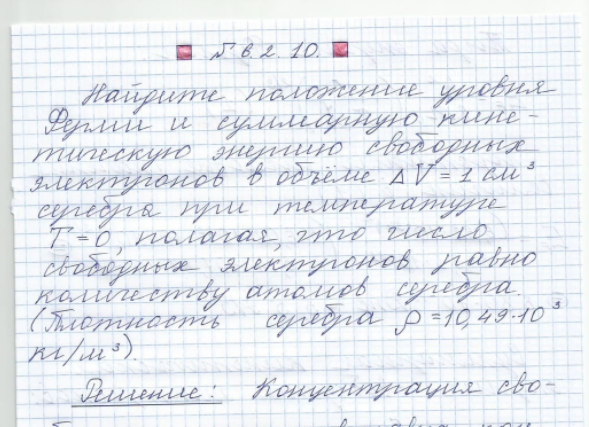 № 6.2.10.
Найдите положение уровня
Ферми и суммарную кине-
тическую энергию свободных
электронов в объёме ΔV = 1 см³
серебра при температуре
T = 0, полагая, что число
свободных электронов равно
количеству атомов серебра.
(Плотность серебра ρ = 10,49·10³
кг/м³).
Решение: Концентрация сво-